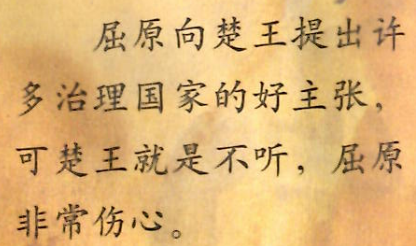 屈原向楚王提出许
多治理国家的好主张，
可楚王就是不听，屈原
非常伤心。